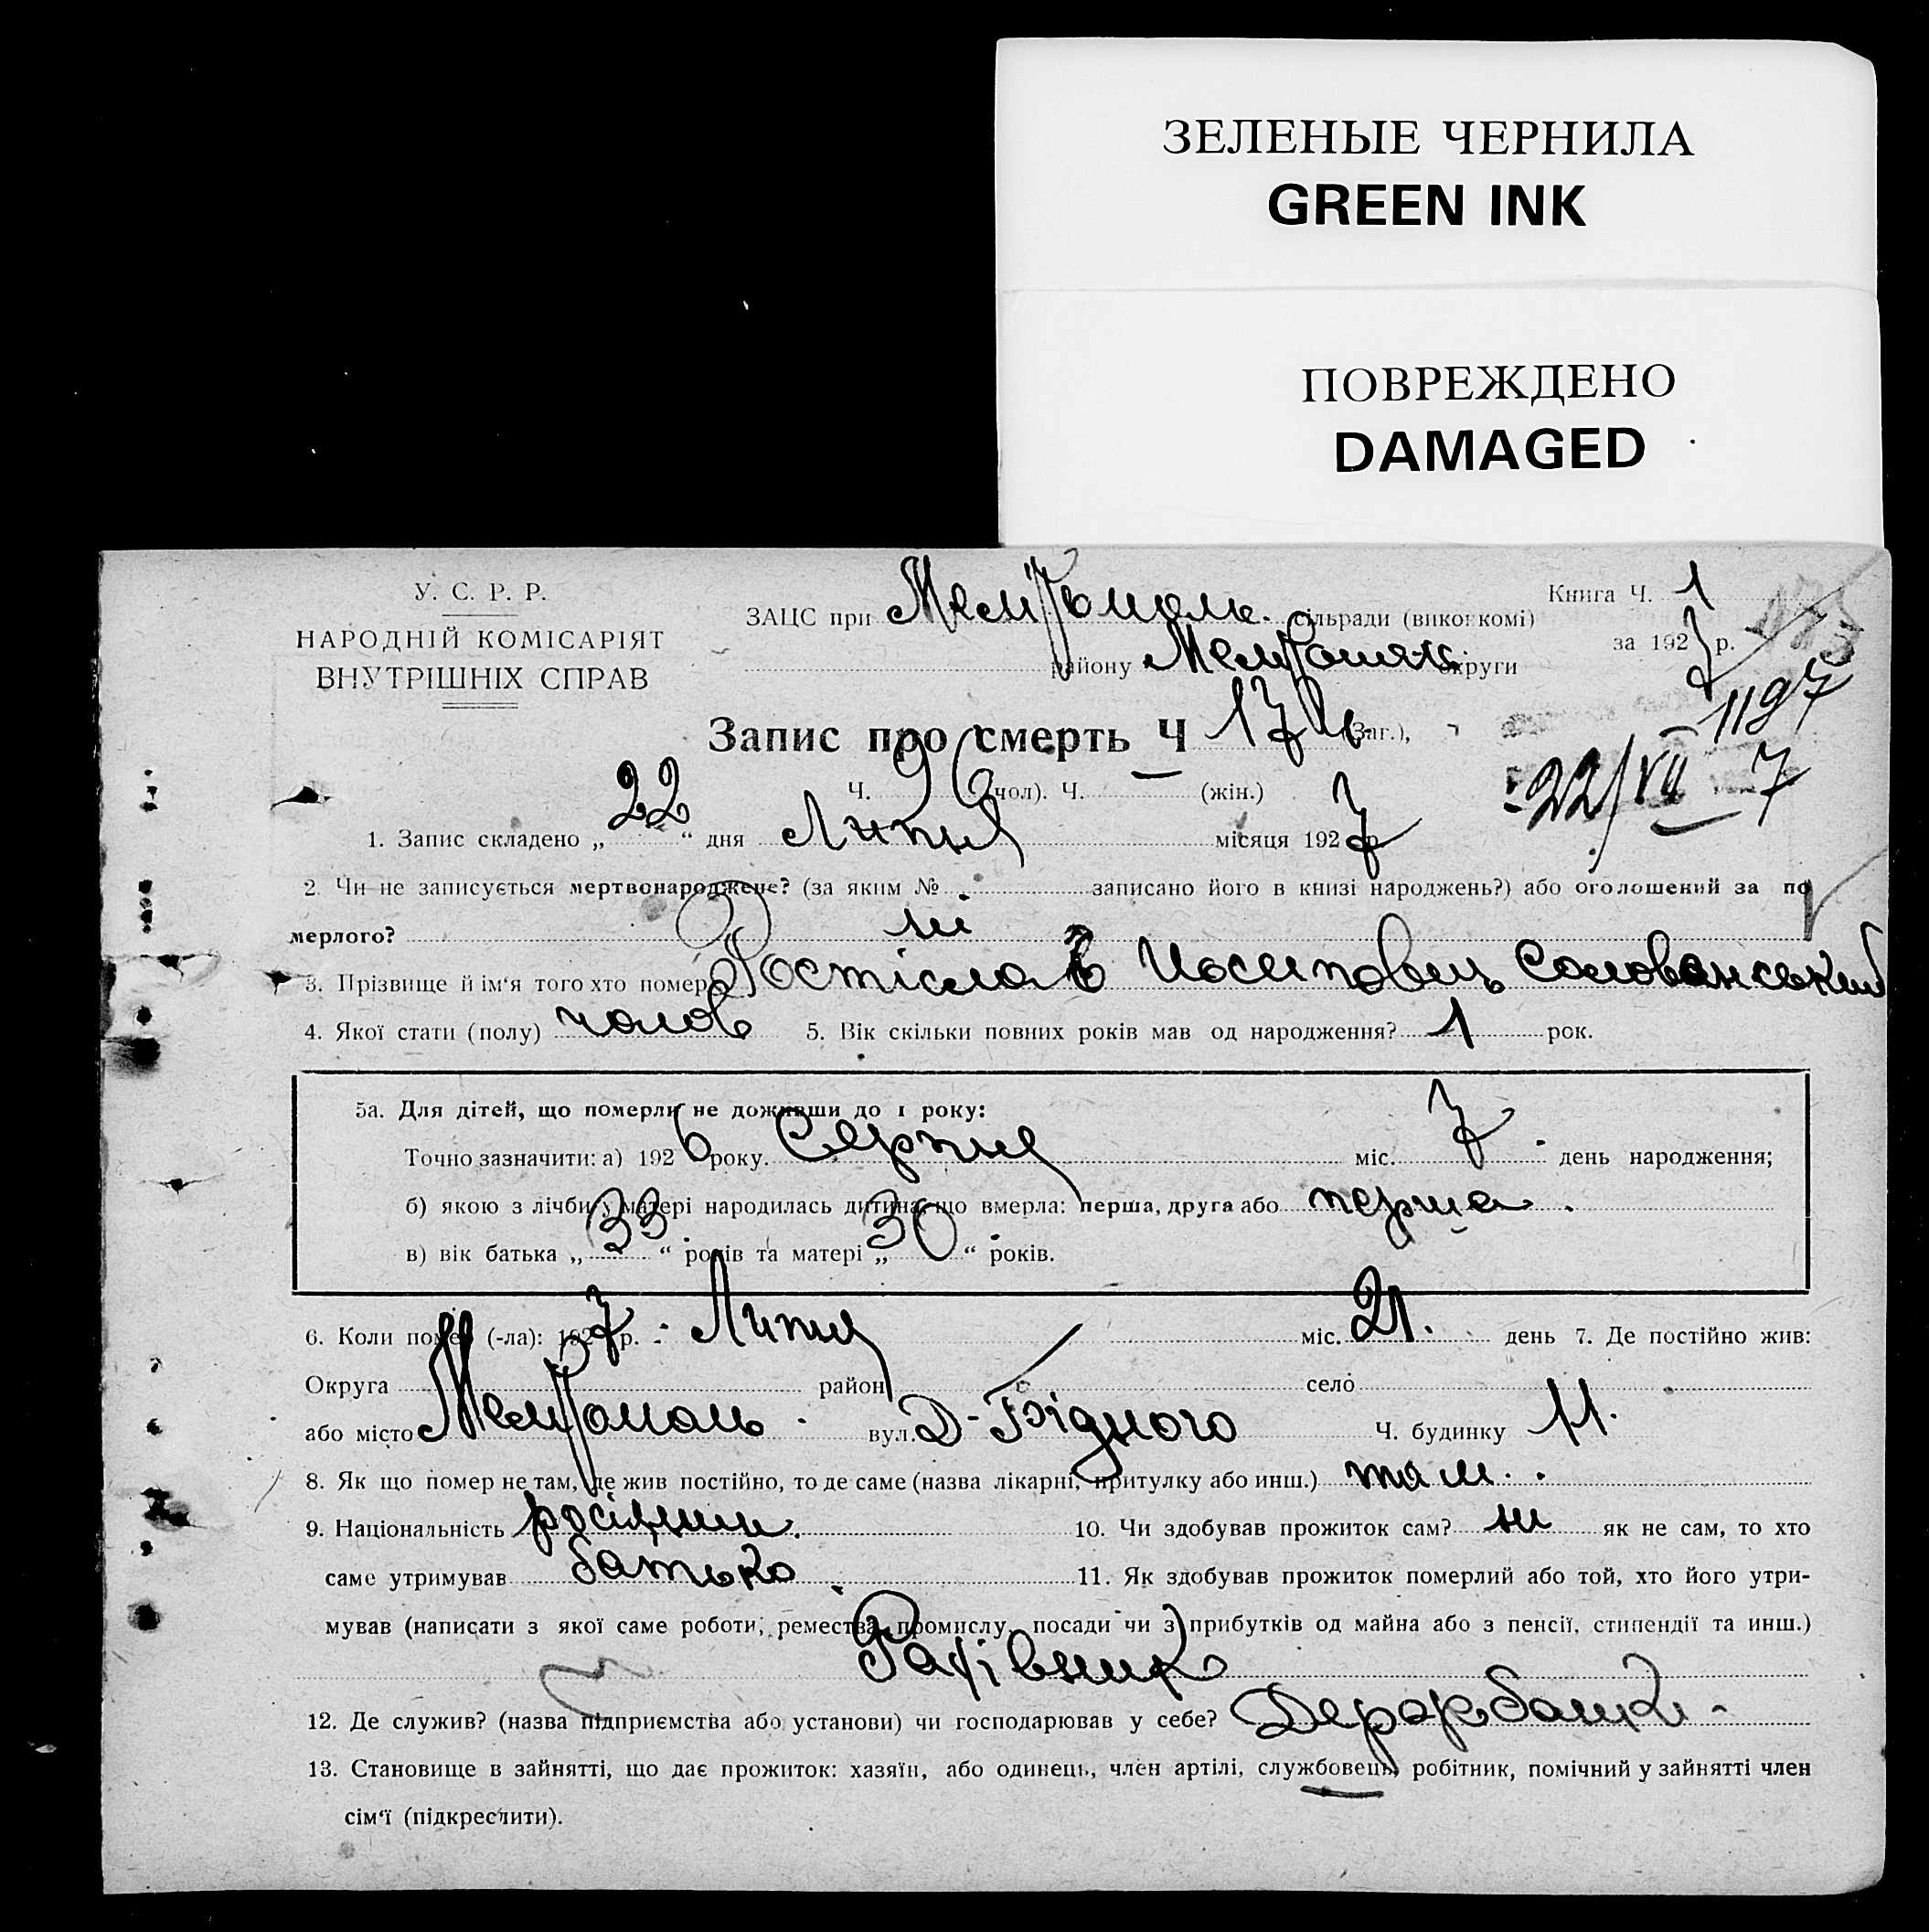 ЗЕЛЕНЫЕ ЧЕРНИЛА
GREEN INK
ПОВРЕЖДЕНО
DAMAGED
У. С. Р. Р.
НАРОДНІЙ КОМІСАРІЯТ
ВНУТРІШНІХ СПРАВ
ЗАЦС при Мелітополь. сільради (виконкомі)
району округи
Книга Ч. 1
за 1927 р.
1197
22/VII 7
Запис про смерть Ч (Заг.),
Ч. 96 (чол). Ч. (жін.)
1. Запис складено „ 22 “ дня Липня місяця 1927 р.
2. Чи не записується мертвонароджене? (за яким № записано його в книзі народжень?) або оголошений за по
мерлого? ні
3. Прізвище й ім'я того хто помер Ростіслав Иосипович Соловянський
4. Якої стати (полу) чолов 5. Вік скільки повних років мав од народження? 1 рок.
5а. Для дітей, що померли не доживши до 1 року:
Точно зазначити: а) 1926 року. Серпня міс. 7 день народження;
б) якою з лічби у матері народилась дитина, що вмерла: перша, друга або перша.
в) вік батька „ 33 “ років та матері „ 30 “ років.
6. Коли помер (-ла): 1927 р. Липня міс. 21. день 7. Де постійно жив:
Округа район село
або місто Мелітополь. вул. Д-Бідного Ч. будинку 11.
8. Як що помер не там, де жив постійно, то де саме (назва лікарні, притулку або инш.) там.
9. Національність 10. Чи здобував прожиток сам? ні як не сам, то хто
саме утримував батько 11. Як здобував прожиток померлий або той, хто його утри-
мував (написати з якої саме роботи, ремества, промислу, посади чи з прибутків од майна або з пенсії, стипендії та инш.)
Рахівник
12. Де служив? (назва підприємства або установи) чи господарював у себе?
13. Становище в зайнятті, що дає прожиток: хазяїн, або одинець, член артілі, службовець, робітник, помічний у зайнятті член
сім'ї (підкреслити).